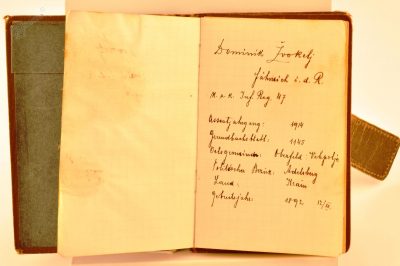 Dominik Žvokelj
Fähnrich i. d. R.
K. u. K. Inf. Reg. 47
Assentjahrgang: 1914
Grundbuchsblatt: 1145
Ortsgemeinde: Oberfeld - Vrhpolje
Politischer Bezirk: Adelsberg
Land: Krain
Geburtsjahr: 1892